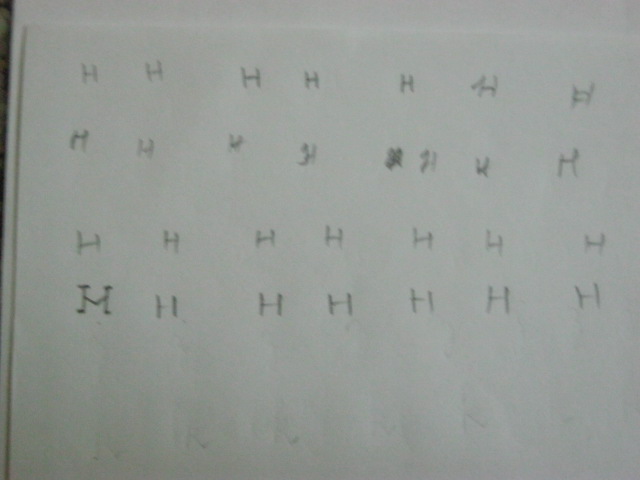 H H H H H H H
H H K H H K H
H H H H H H H
M H H H H H H